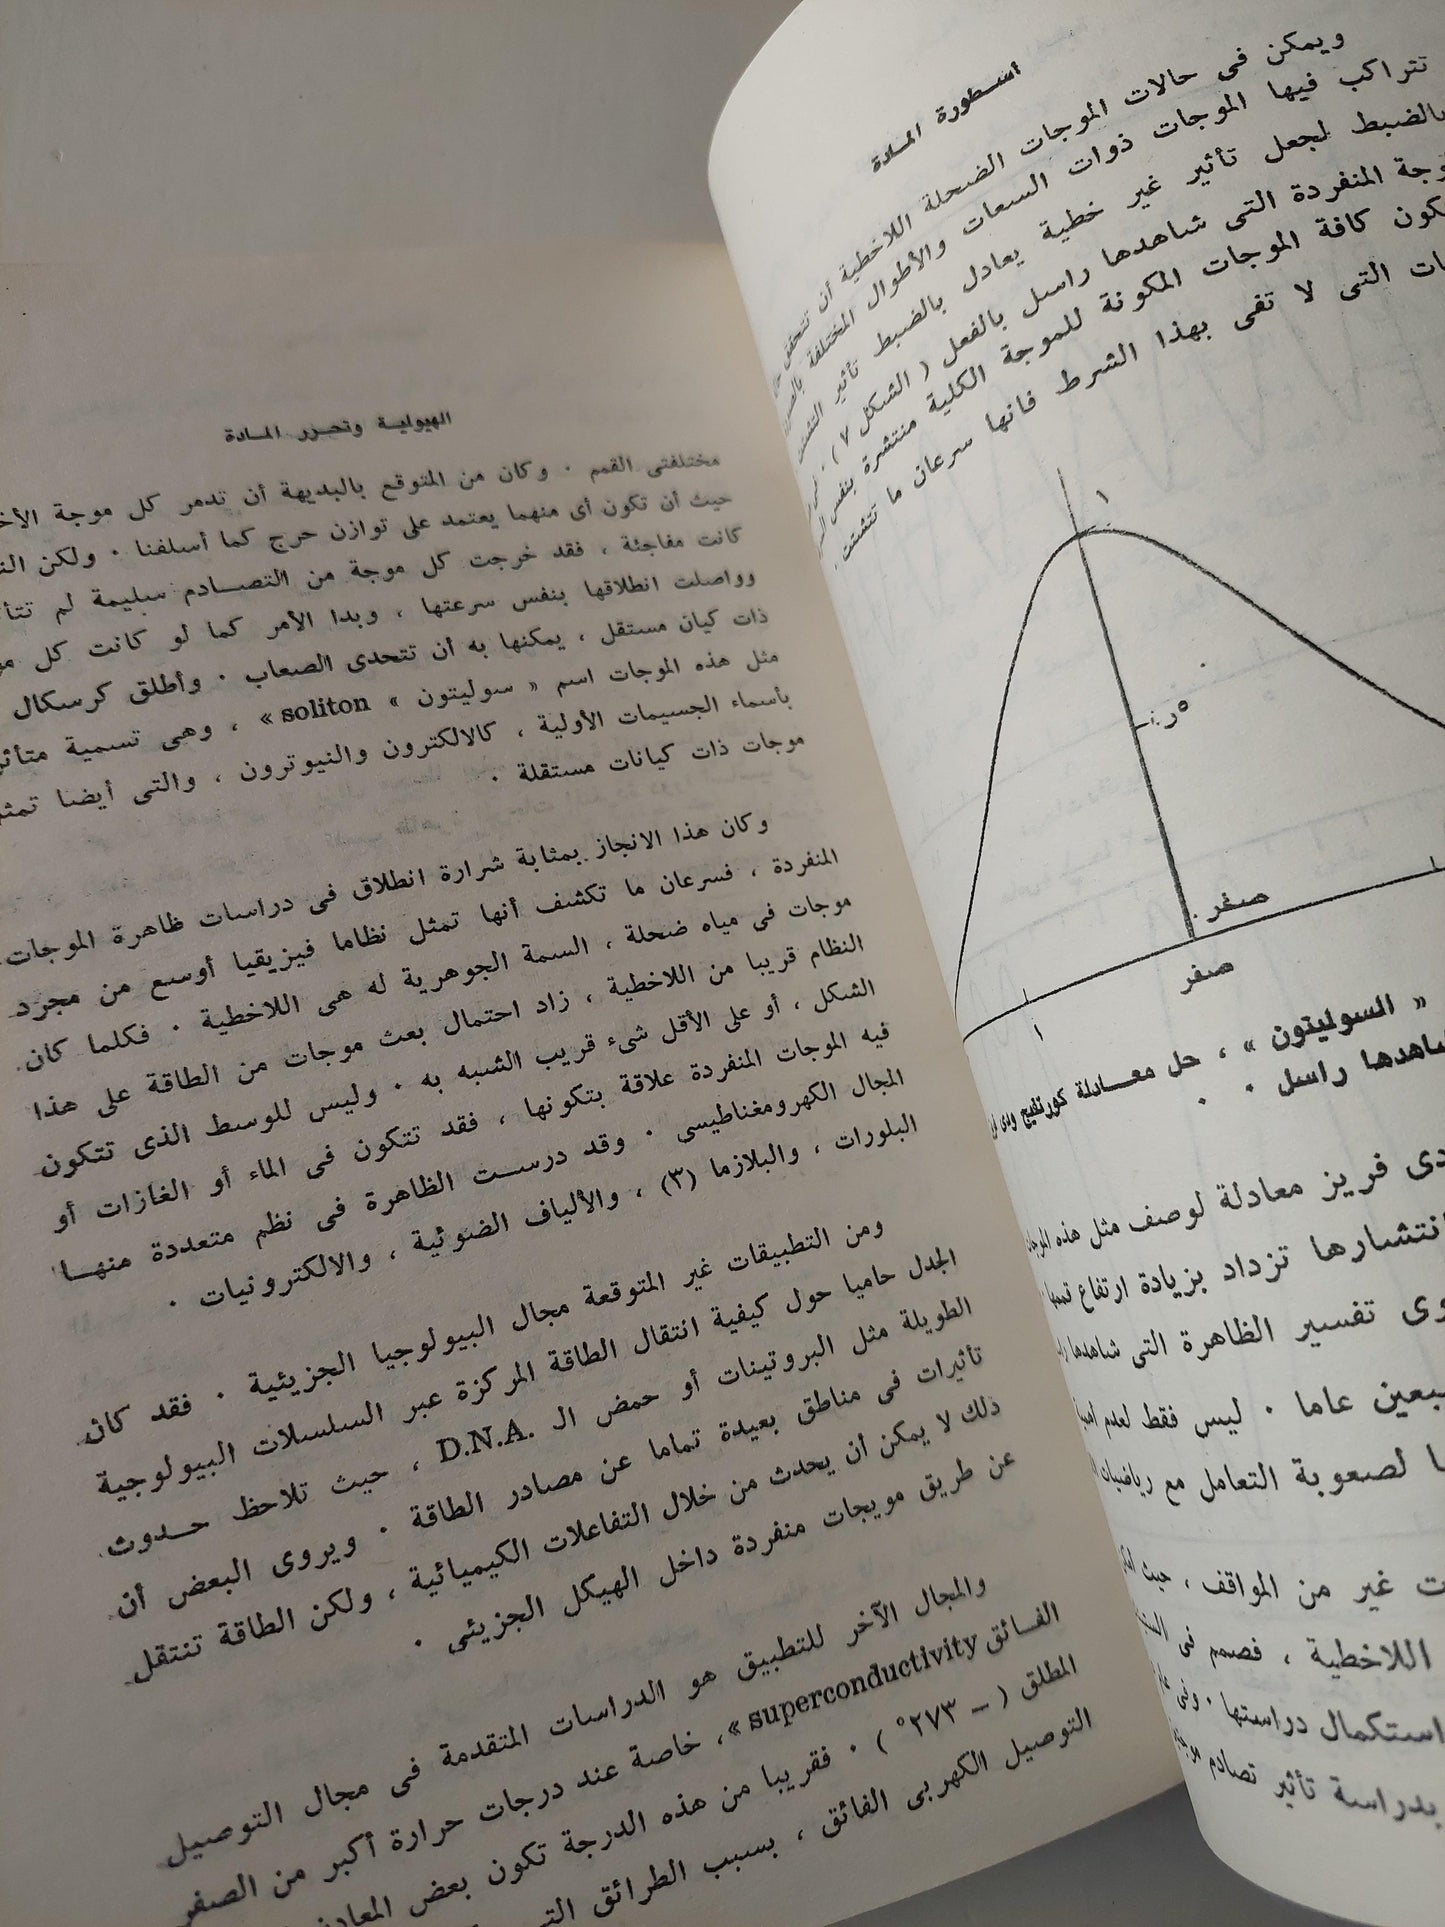 اسطورة المادة
ويمكن فى حالات الموجات الضحلة اللاخطية أن تتحقق
تتراكب فيها الموجات ذوات السعات والأطوال المختلفة
بالضبط لجعل تأثير غير خطية يعادل بالضبط تأثير التشتت
المنفردة التى شاهدها راسل بالفعل ( الشكل ٧ ) ٠
كافة الموجات المكونة للموجة الكلية منتشرة بنفس
التى لا تفى بهذا الشرط فانها سرعان ما تتشتت ٠
١
٥ر٠
صفر
صفر
١
« السوليتون » ، حل معادلة كورتفيج ودى
شاهدها راسل ٠
دى فريز معادلة لوصف مثل هذه الموجات
انتشارها تزداد بزيادة ارتفاع قممها ٠
تفسير الظاهرة التى شاهدها
عاما ٠ ليس فقط لعدم
لصعوبة التعامل مع رياضيات
غير من المواقف ، حيث
اللاخطية ، فصمم فى
استكمال دراستها ٠ وفى
بدراسة تأثير تصادم
الهيولية وتحرر المادة
مختلفتى القمم ٠ وكان من المتوقع بالبديهة أن تدمر كل موجة
حيث أن تكون أى منهما يعتمد على توازن حرج كما أسلفنا ٠ ولكن
كانت مفاجئة ، فقد خرجت كل موجة من التصادم سليمة لم
وواصلت انطلاقها بنفس سرعتها ، وبدا الأمر كما لو كانت كل
ذات كيان مستقل ، يمكنها به أن تتحدى الصعاب ٠ وأطلق كرسكال
مثل هذه الموجات اسم « سوليتون » soliton » ، وهى تسمية
بأسماء الجسيمات الأولية ، كالالكترون والنيوترون ، والتى أيضا
موجات ذات كيانات مستقلة ٠
وكان هذا الانجاز بمثابة شرارة انطلاق فى دراسات ظاهرة الموجات
المنفردة ، فسرعان ما تكشف أنها تمثل نظاما فيزيقيا أوسع من مجرد
موجات فى مياه ضحلة ، السمة الجوهرية له هى اللاخطية ٠ فكلما كان
النظام قريبا من اللاخطية ، زاد احتمال بعث موجات من الطاقة على هذا
الشكل ، أو على الأقل شىء قريب الشبه به ٠ وليس للوسط الذى تتكون
فيه الموجات المنفردة علاقة بتكونها ، فقد تتكون فى الماء أو الغازات أو
المجال الكهرومغناطيسى ٠ وقد درست الظاهرة فى نظم متعددة منها
البلورات ، والبلازما (٣) ، والألياف الضوئية ، والالكترونيات ٠
ومن التطبيقات غير المتوقعة مجال البيولوجيا الجزيئية ٠ فقد كان
الجدل حاميا حول كيفية انتقال الطاقة المركزة عبر السلسلات البيولوجية
الطويلة مثل البروتينات أو حمض الـ D.N.A. ، حيث تلاحظ حدوث
تأثيرات فى مناطق بعيدة تماما عن مصادر الطاقة ٠ ويروى البعض أن
ذلك لا يمكن أن يحدث من خلال التفاعلات الكيميائية ، ولكن الطاقة تنتقل
عن طريق مويجات منفردة داخل الهيكل الجزيئى ٠
والمجال الآخر للتطبيق هو الدراسات المتقدمة فى مجال التوصيل
الفائق superconductivity » ، خاصة عند درجات حرارة أكبر من الصفر
المطلق ( – ٢٧٣° ) ٠ فقريبا من هذه الدرجة تكون بعض
التوصيل الكهربى الفائق ، بسبب الطرائق